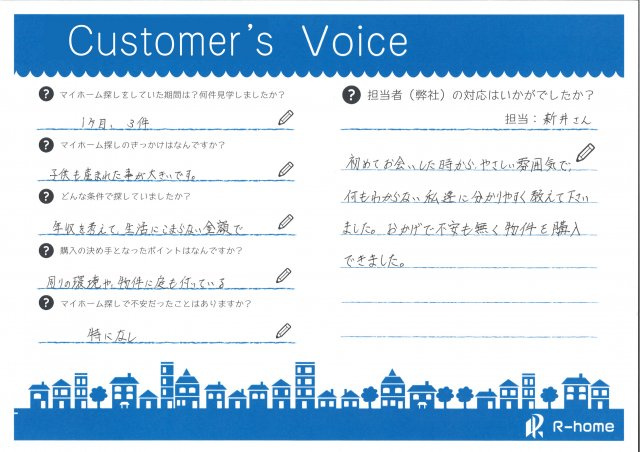 Customer's Voice
? マイホーム探しをしていた期間は?何件見学しましたか?
1ヶ月、3件
? マイホーム探しのきっかけはなんですか?
子供も産まれた事が大きいです。
? どんな条件で探していましたか?
年収を考えて、生活にこまらない金額で
? 購入の決め手となったポイントはなんですか?
周りの環境や、物件に庭も付いている
? マイホーム探しで不安だったことはありますか?
特になし
? 担当者(弊社)の対応はいかがでしたか?
担当:新井さん
初めてお会いした時から、やさしい雰囲気で、
何もわからない私達に分かりやすく教えて下さい
ました。おかげで不安も無く物件を購入
できました。
R-home